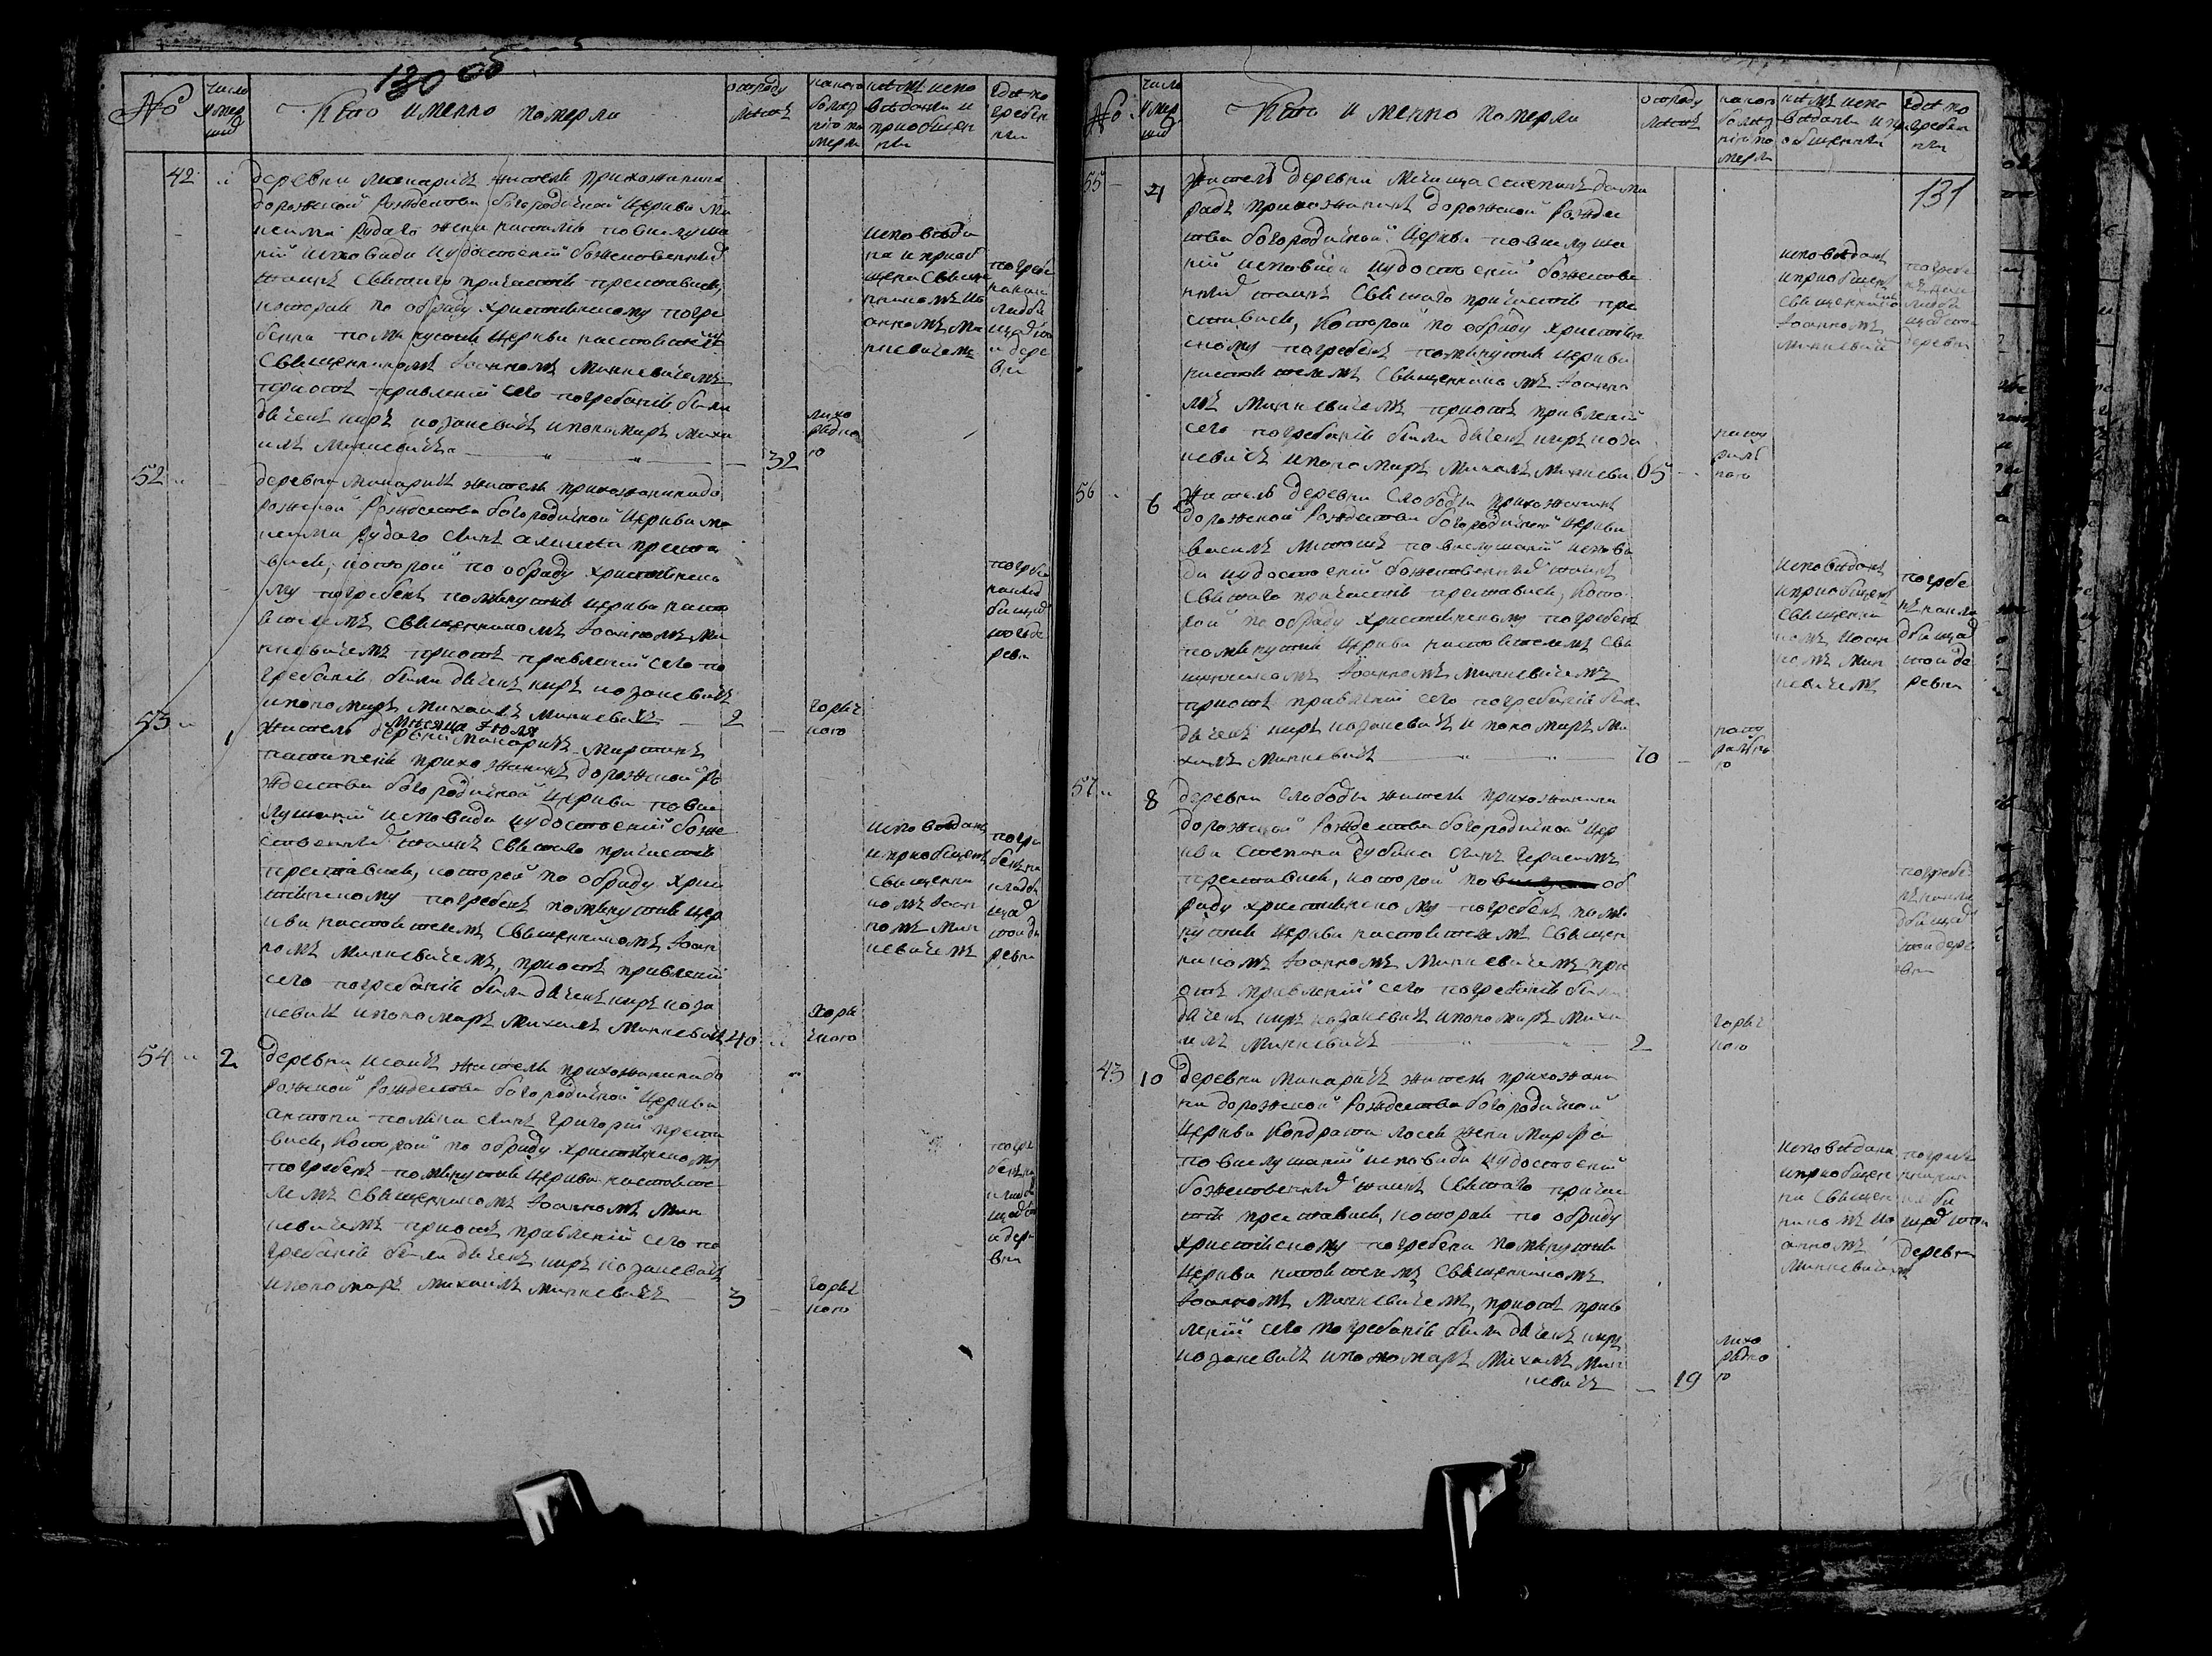 130 об
№
число
умер
ших
Кто именно померли
отроду
летъ
какою
болез
нію по
мерли
кемъ испо
веданы и
приобщен
ны
где по
гребен
ны
42
деревни Макаричъ жителя прихожанина
дорожской Рождества богородичной церкви Ма
ксима Рудаго жена наталія повислуша
ніи исповеди иудостоеніи божественныхъ
таинъ Святаго причастія преставись,
которая по обряду християнскому погре
бенна помянутия церкви настоятелемъ
Священникомъ Іоанномъ Минкевичемъ
приотъ правленіи сего погребанія были
дячекъ киръ козакевичъ ипономаръ Миха
илъ Минкевичъ
32
лихо
радко
ю
исповеда
на иприоб
щена Священ
никомъ Іо
анномъ Ми
нкевичемъ
погребе
на на к
ладби
щах той
деревни
52
деревни Макаричъ жителя прихожанина до
рожской Рождества богородичной церкви ма
ксима Рудаго синъ алексей преста
вись, которой по обряду християнско
му погребенъ помянутия церкви насто
ятелемъ Священникомъ Іоанномъ Ми
нкевичемъ приотъ правленіи сего по
гребанія были дячекъ киръ козакевичъ
ипономаръ Михаилъ Минкевичъ
2
горяч
кою
53
Месяца Іюля
1
житель деревни Макаричъ Мартинъ
прихожанинъ дорожской Ро
ждества богородичной церкви повис
лушаніи исповеди иудостоеніи боже
ственныхъ таинъ Святаго причастія
преставись, которой по обряду хрис
тиянскому погребенъ помянутия цер
кви настоятелемъ Священникомъ Іоан
номъ Минкевичемъ, приотъ правленіи
сего погребанія были дячекъ киръ коза
кевичъ ипономаръ Михаилъ Минкевичъ
40
горя
чкою
исповеданъ
иприобщенъ
Священни
комъ Іоан
номъ Мин
кевичемъ
погре
бенъ на
кладби
щах
той де
ревни
54
2
деревни жителя прихожанина до
рожской Рождества богородичной церкви
антона синъ Григорій преста
вись, которой по обряду християнскому
погребенъ помянутия церкви настояте
лемъ Священникомъ Іоанномъ Мин
кевичемъ приотъ правленіи сего по
гребанія были дячекъ киръ козакевичъ
ипономаръ Михаилъ Минкевичъ
3
горяч
кою
131
№
число
умер
ших
Кто именно померли
отроду
летъ
какою
болез
нію по
мерли
кемъ испо
веданы и при
общенны
где по
гребен
ны
55
4
житель деревни Степанъ
прихожанинъ дорожской Рожде
ства богородичной церкви повислуша
ніи исповеди иудостоеніи божестве
нныхъ таинъ Святаго причастія пре
ставись, которой по обряду християн
скому погребенъ помянутия церкви
настоятелемъ Священникомъ Іоанно
мъ Минкевичемъ приотъ правленіи
сего погребанія были дячекъ киръ коза
кевичъ ипономаръ Михаилъ Минкеви
65
исповеданъ
иприобщенъ
Священникомъ
Іоанномъ
Минкевич
56
6
житель деревни Слободы прихожанинъ
дорожской Рождества богородичной церкви
василъ повислушаніи испове
ди иудостоеніи божественныхъ таинъ
Святаго причастія преставись, кото
рой по обряду християнскому погребенъ
помянутия церкви настоятелемъ Свя
щенникомъ Іоанномъ Минкевичемъ
приотъ правленіи сего погребанія были
дячекъ киръ козакевичъ и пономаръ Ми
хаилъ Минкевичъ
70
исповеданъ
иприобщенъ
Священни
комъ Іоан
номъ Мин
кевичемъ
погребе
нъ на кла
дбищах
той де
ревни
57
8
деревни Слободы жителя прихожанина
дорожской Рождества богородичной цер
кви Степана Дубика синъ Герасимъ
преставись, которой по об
ряду християнскому погребенъ помя
нутия церкви настоятелемъ Священ
никомъ Іоанномъ Минкевичемъ при
отъ правленіи сего погребанія были
дячекъ киръ козакевичъ ипономаръ Миха
илъ Минкевичъ
2
горяч
кою
погребе
нъ на кла
дбищах
той дере
вни
43
10
деревни Макаричъ жителя прихожани
на дорожской Рождества богородичной
церкви Кондрата лося жена Марфа
повислушаніи исповеди иудостоеніи
божественныхъ таинъ Святаго причас
тія преставись, которая по обряду
християнскому погребена помянутия
церкви настоятелемъ Священникомъ
Іоанномъ Минкевичемъ, приотъ прав
леніи сего погребанія были дячекъ киръ
козакевичъ ипономаръ Михаилъ Мин
кевичъ
19
лихо
радко
ю
исповедана
иприобщен
на Священ
никомъ Іо
анномъ
Минкевичемъ
деревни